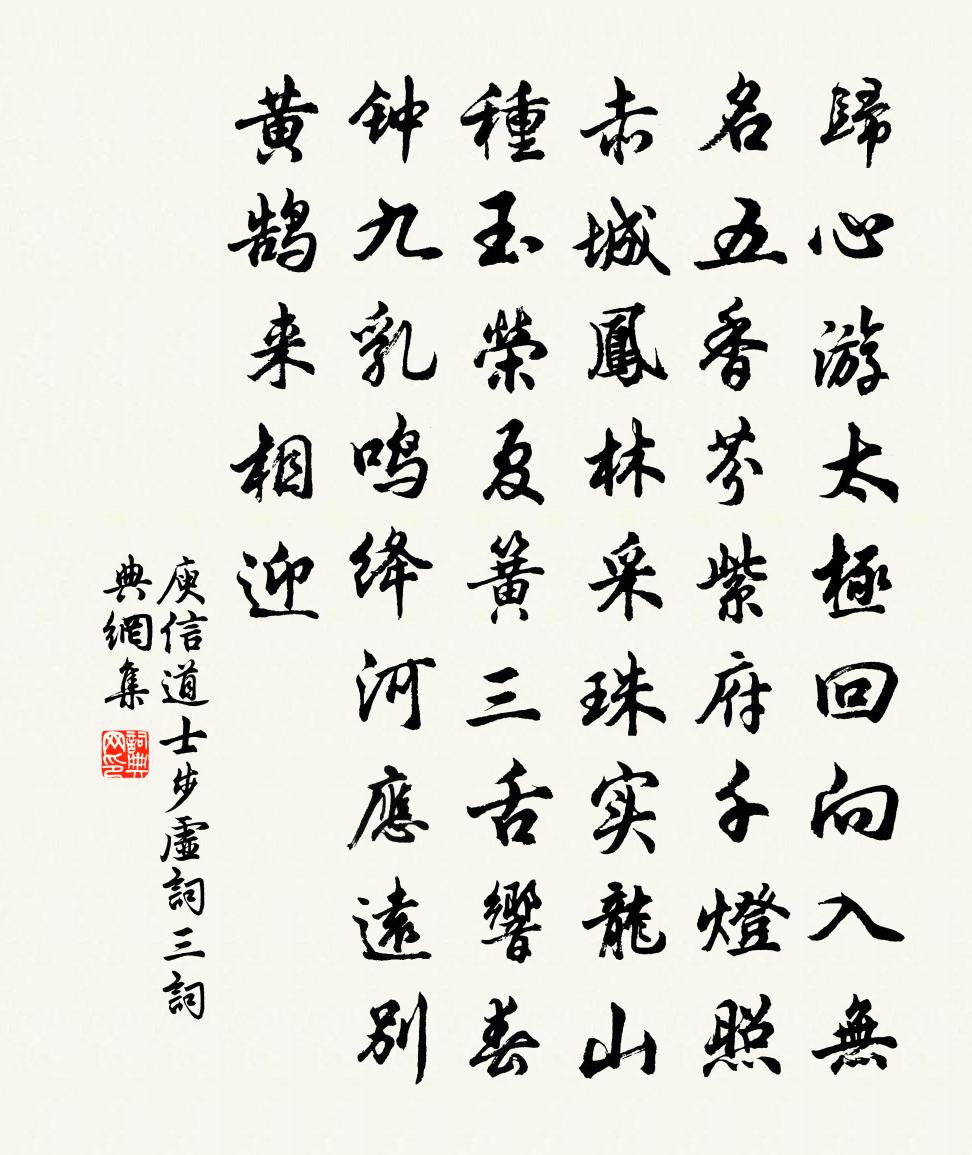 歸心游太極回向入無
名五香芬紫府千燈照
赤城鳳林采珠实龍山
種玉榮夏簧三舌響春
钟九乳鸣绛河應遠别
黄鹄来相迎
庾信道士步虛詞三詞
典網集
詞典网印